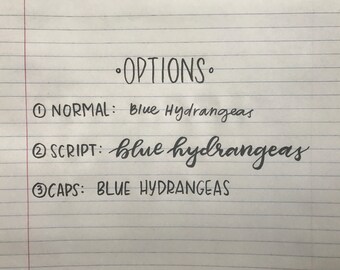 •OPTIONS•
① NORMAL: Blue Hydrangeas
② SCRIPT: blue hydrangeas
③ CAPS: BLUE HYDRANGEAS